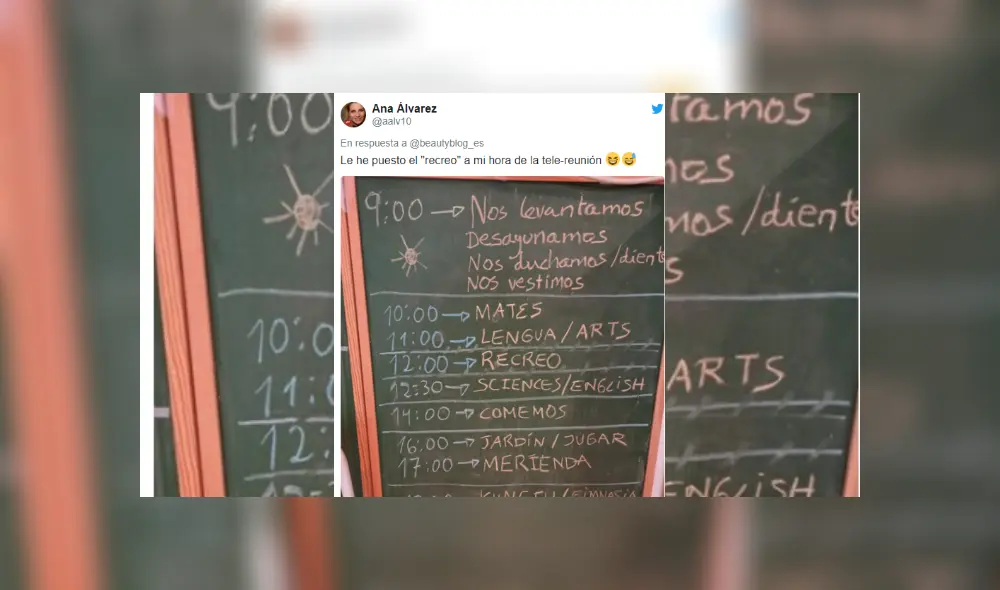 Ana Álvarez
@aalv10
En respuesta a @beautyblog_es
Le he puesto el "recreo" a mi hora de la tele-reunión 😆😅
9:00 → Nos levantamos
Desayunamos
Nos duchamos/dient
NOS vestimos
10:00 → MATES
11:00 → LENGUA/ARTS
12:00 → RECREO
12:30 → SCIENCES/ENGLISH
14:00 → COMEMOS
16:00 → JARDÍN/JUGAR
17:00 → MERIENDA
9:00
10:0
11:0
12:
tamos
mos
mos/diente
s
ARTS
ENGLISH